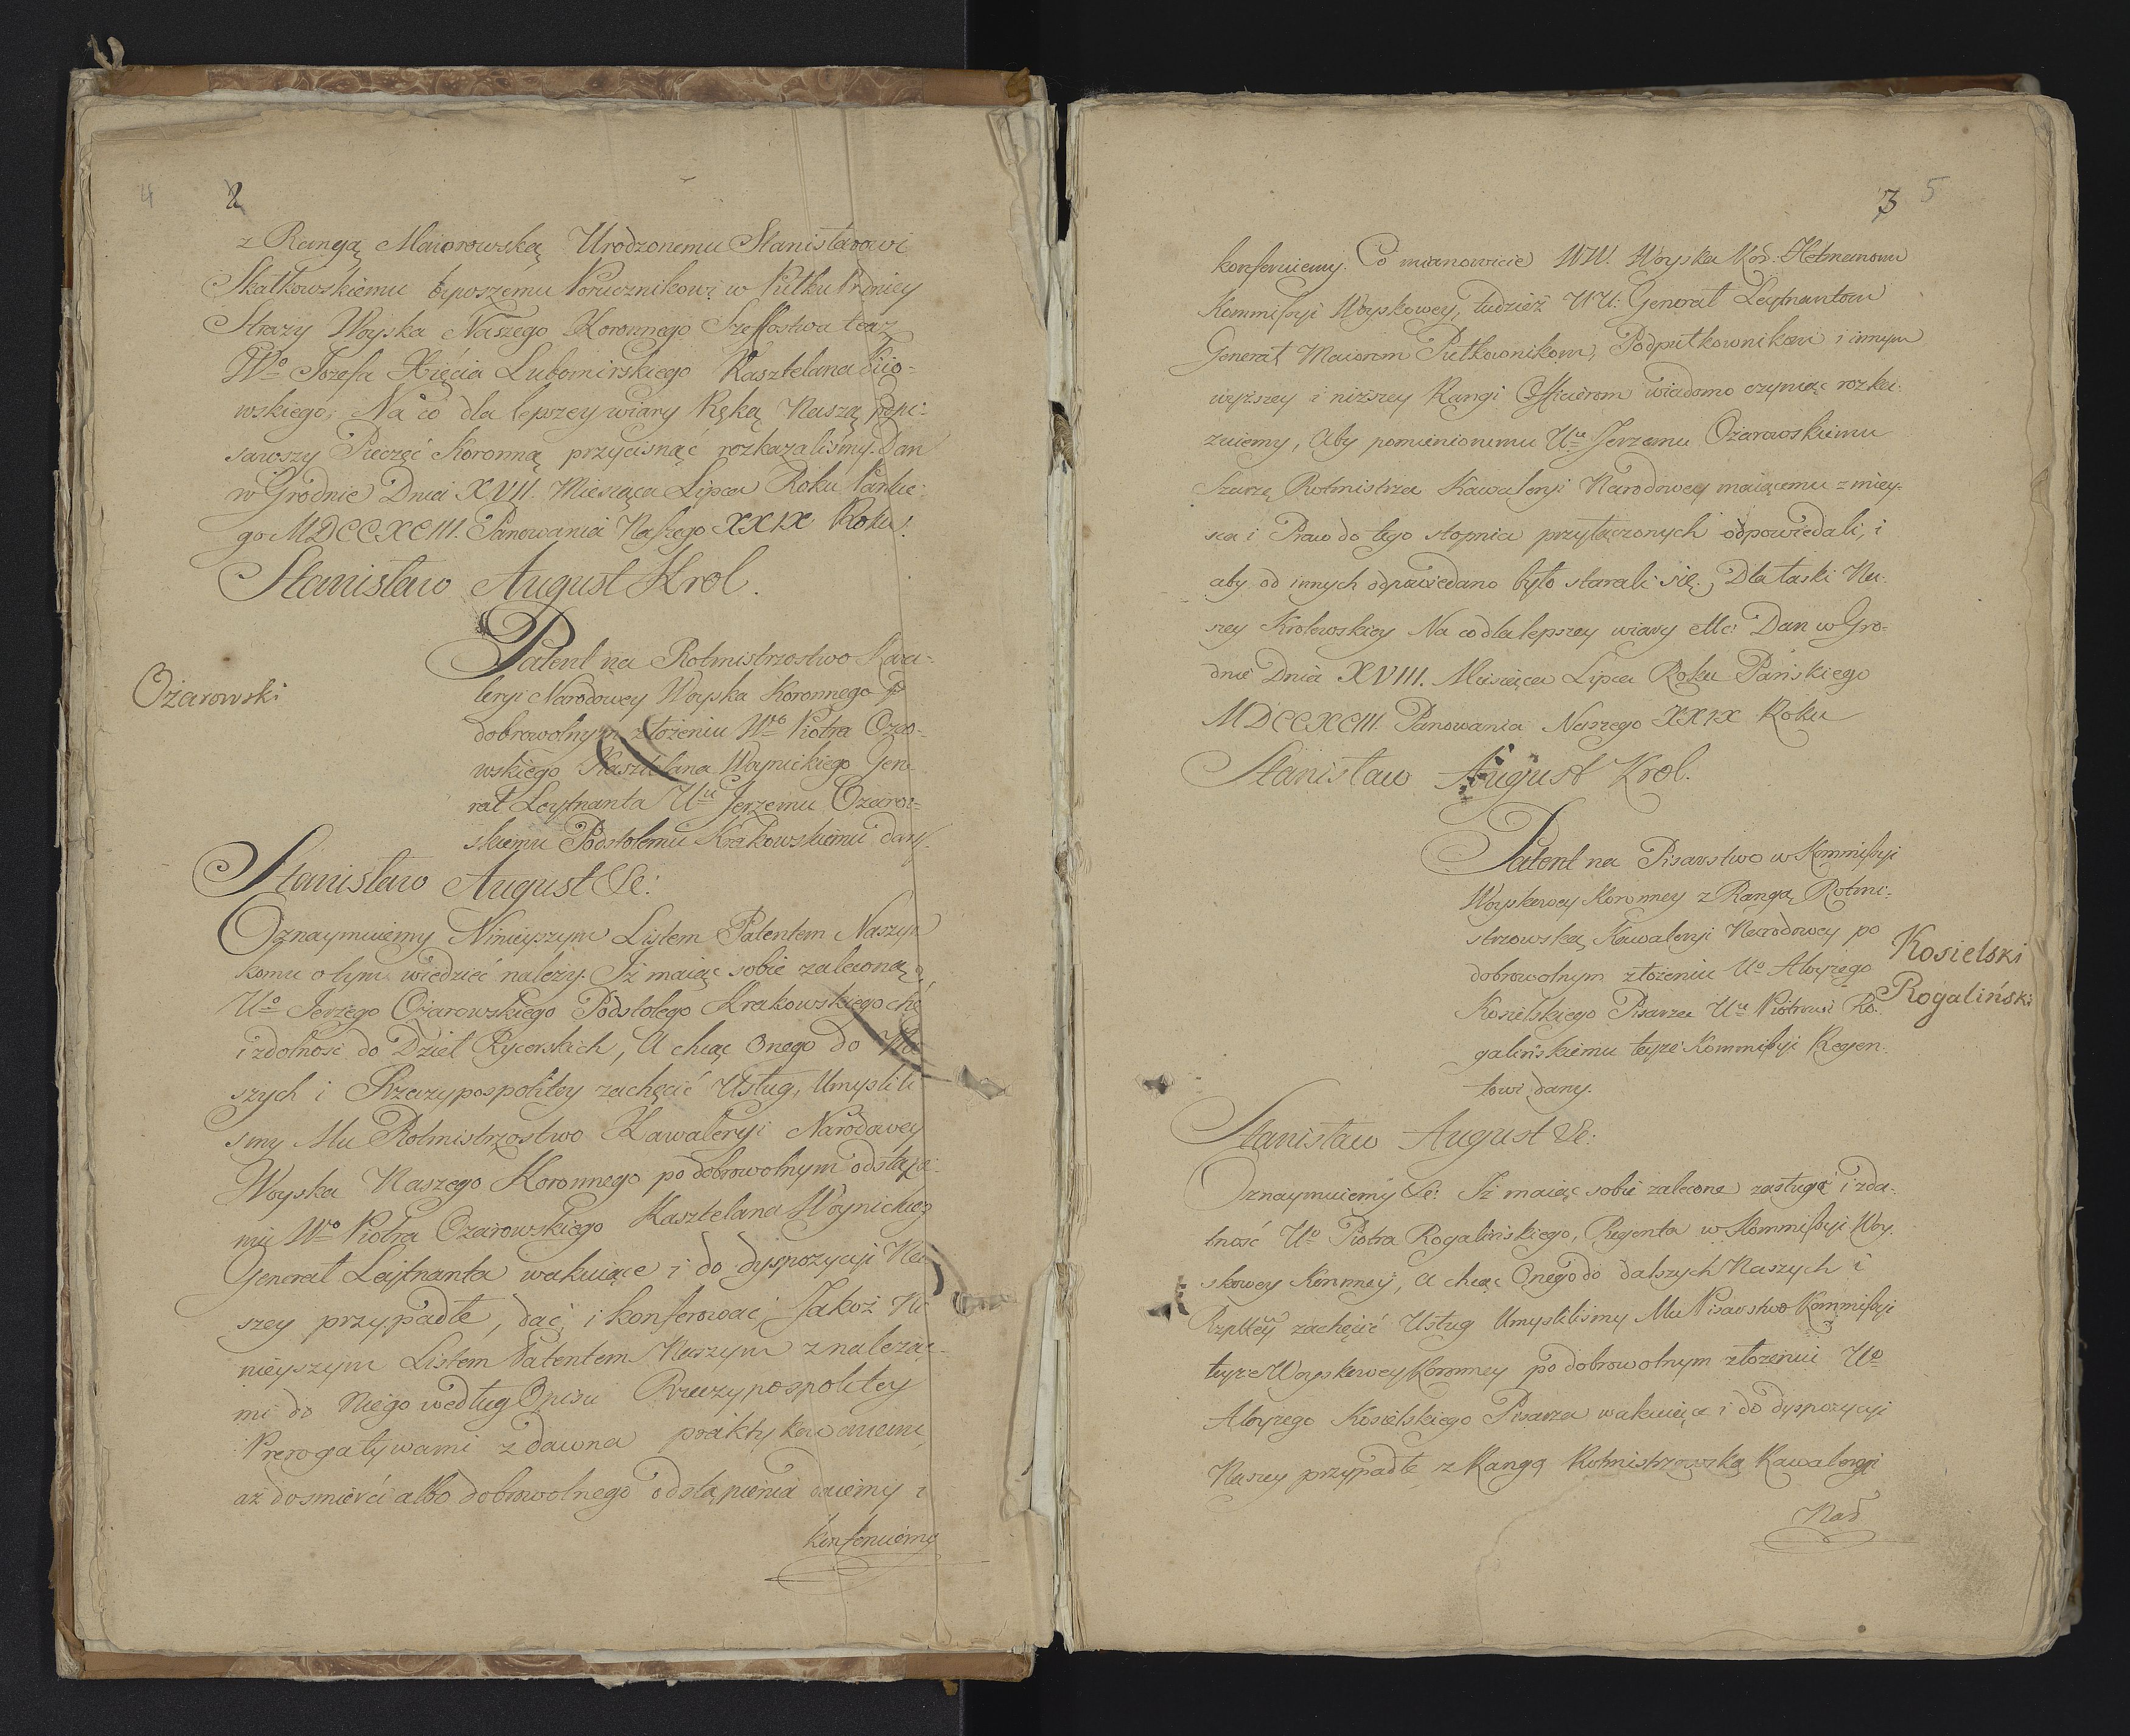 4 2
z Rangą Maiorowską Urodzonemu Stanisławowi
Skałkowskiemu Porucznikowi w Pułku Przedniey
Straży Woyska Naszego Koronnego Szeffostwa teraz
Wo Jozefa Xięcia Lubomirskiego Kasztelana Kiio-
wskiego; Na co dla lepszey wiary Ręką Naszą podpi-
sawszy Pieczęć Koronną przycisnąć rozkazaliśmy. Dan
w Grodnie Dnia XVII. Miesiąca Lipca Roku Pańskie:
go MDCCXCIII. Panowania Naszego XXIX Roku.
Stanisław August Krol.
Patent na Rotmistrzostwo Kawa-
leryi Narodowey Woyska Koronnego po
Ożarowski
dobrowolnym złożeniu Wo Piotra Ożaro-
wskiego Kasztelana Woynickiego Gene-
rał Leytnanta Uu Jerzemu Ożarow-
skiemu Podstolemu Krakowskiemu dany.
Stanisław August &c:
Oznaymuiemy Ninieyszym Listem Patentem Naszym
komu o tym wiedzieć należy. Iż maiąc sobie zaleconą
Uo Jerzego Ożarowskiego Podstolego Krakowskiego chęć
i zdolność do Dzieł Rycerskich, a chcąc Onego do Na
szych i Rzeczypospolitey zachęcić Usług, Umyślili
śmy Mu Rotmistrzostwo Kawaleryi Narodowey
Woyska Naszego Koronnego po dobrowolnym odstąpie-
niu Wo Piotra Ożarowskiego Kasztelana Woynickieg
Generał Leytnanta wakuiące i do dyspozycyi Na
szey przypadłe, dać, i konferować, Jakoż Ni
nieyszym Listem Patentem Naszym z należąc-
mi do Niego według Opisu Rzeczypospolitey
Prerogatywami z dawna praktykowanemi
aż do śmierci albo dobrowolnego odstąpienia daiemy i
konferuiemy
3 5
konferuiemy. Co mianowicie WW. Woyska Kor: Hetmanom
Kommissyi Woyskowey, tudzież UU: Generał Leytnantom
Generał Maiorom Pułkownikom, Podpułkownikom i innym
wyższey i niższey Rangi Officierom wiadomo czyniąc rozka-
zuiemy, Aby pomienionemu Uu Jerzemu Ożarowskiemu
Szarżę Rotmistrza Kawaleryi Narodowey maiącemu z miey-
sca i Praw do tego stopnia przyłączonych odpowiedali, i
aby od innych odpowiedano było starali się; Dla łaski Na-
szey Krolewskiey Na co dla lepszey wiary ettc: Dan w Gro-
dnie Dnia XVIII. Miesiąca Lipca Roku Pańskiego
MDCCXCIII. Panowania Naszego XXIX Roku
Stanisław August Krol.
Patent na Pisarstwo w Kommissyi
Woyskowey Koronney z Rangą Rotmi-
strzowską Kawaleryi Narodowey po
Kosielski
dobrowolnym złożeniu Uo Aloyzego
Rogaliński
Kosielskiego Pisarza Uu Piotrowi Ro-
galińskiemu teyże Kommissyi Regen-
towi dany.
Stanisław August &c:
Oznaymuiemy &c: Iż maiąc sobie zalecone zasługi i zda-
tność Uo Piotra Rogalińskiego, Regenta w Kommissyi Woy-
skowey Koronney, a chcąc Onego do dalszych Naszych i
Rzpltey zachęcić Usług Umyśliliśmy Mu Pisarstwo Kommissyi
teyże Woyskowey Koronney po dobrowolnym złożeniu Uo
Aloyzego Kosielskiego Pisarza wakuiące i do dyspozycyi
Naszey przypadłe, z Rangą Rotmistrzowską Kawaleryi
Nar